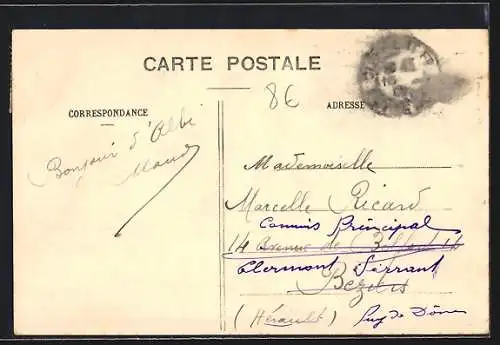 CARTE POSTALE
86
CORRESPONDANCE
ADRESSE
Bonjour d'Albi
Mademoiselle
Marcelle Ricard
Commis Principal
14 Avenue de Belfort 14
Clermont Ferrand
Beziers
(Hérault) Puy de Dôme